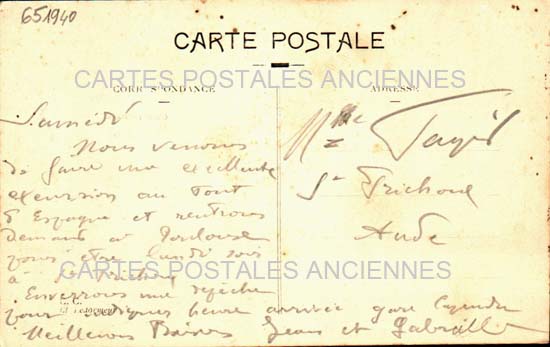 651940
CARTE POSTALE
CARTES POSTALES ANCIENNES
CORRESPONDANCE
ADRESSE
Samedi
Nous venons
de faire une excellente
excursion au Pont
d'Espagne et rentrons
demain à Toulouse
pour être lundi soir
à St
Enverrons une dépêche
pour indiquer heure arrivée gare
Meilleurs Baisers Jean et
Mlle
St Frichoux
Aude
CARTES POSTALES ANCIENNES